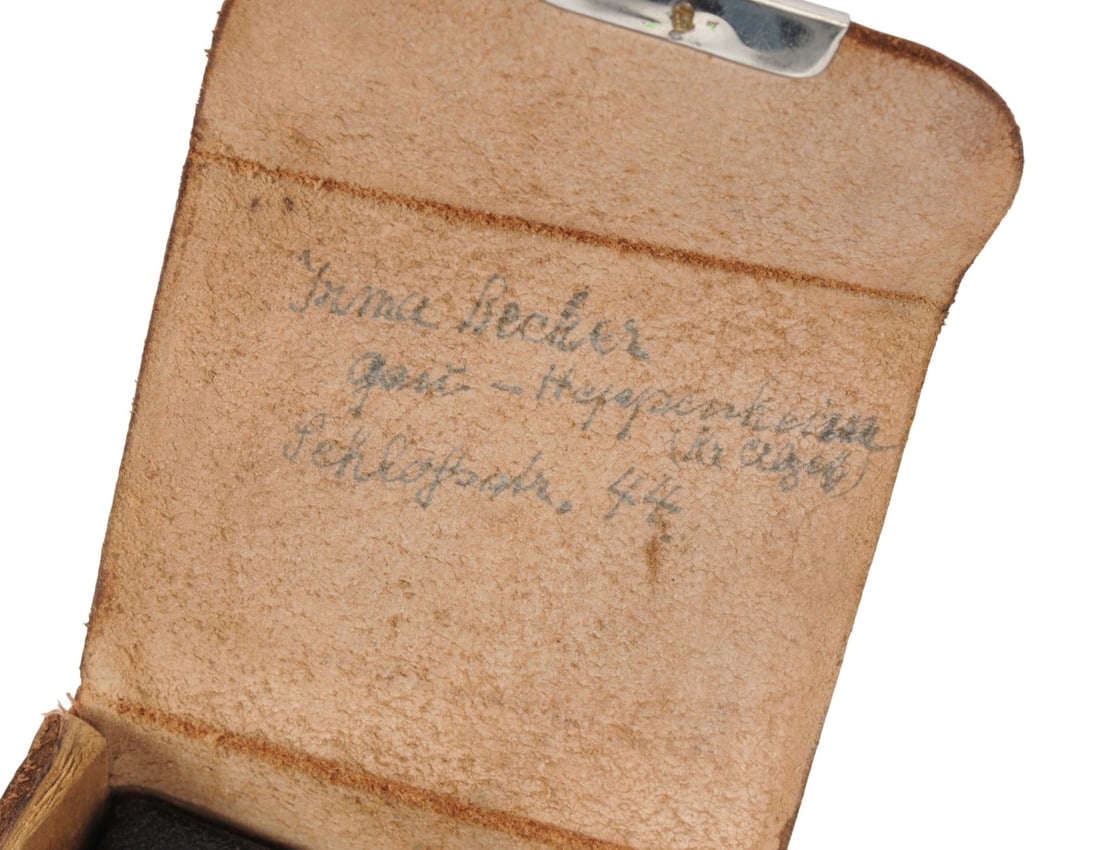 Irma Becker
Gau - Heppenheim
(Kr Alzey)
Schloßstr. 44